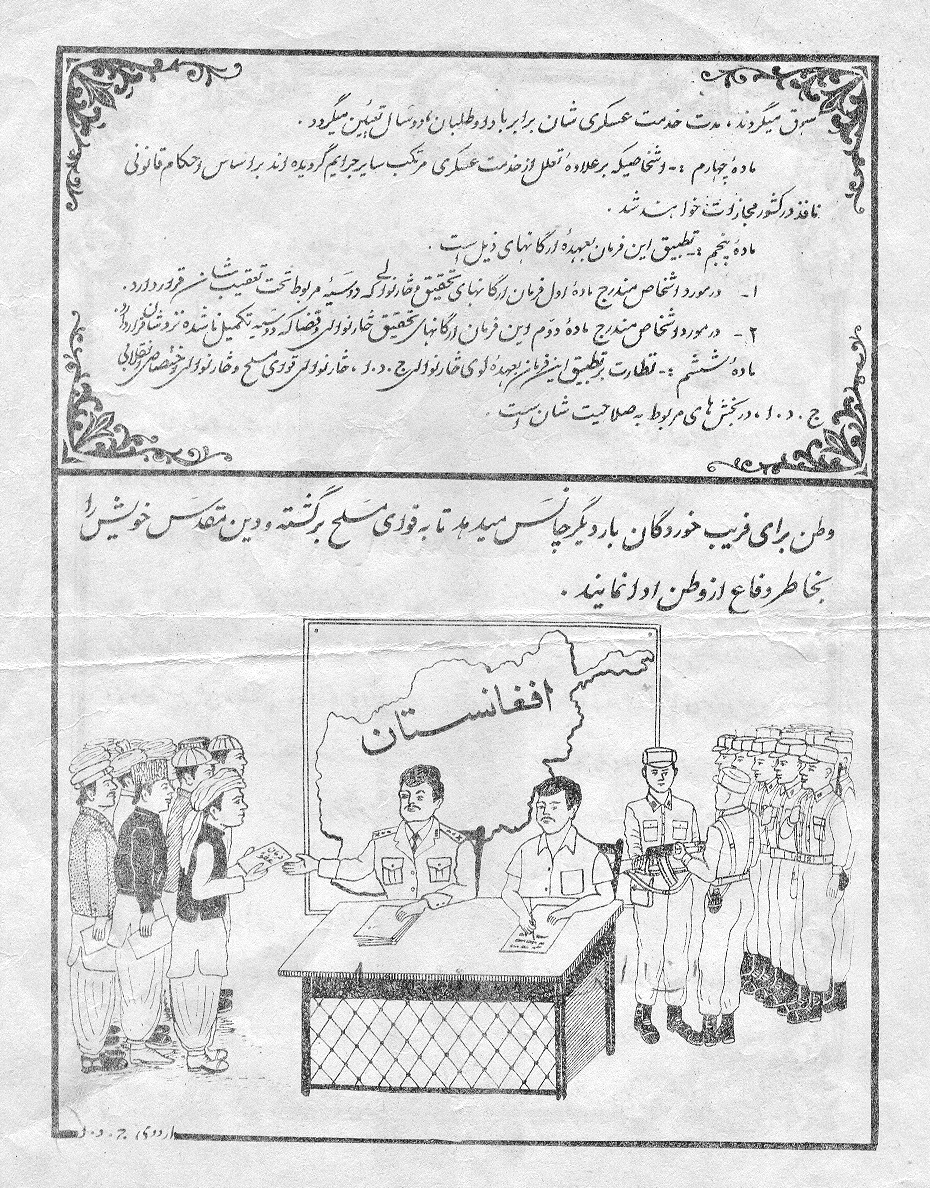 سوق میگردند، مدت خدمت عسکری شان برابر با داوطلبان، دو سال تعیین میگردد.
مادهٔ چهارم :- اشخاصیکه برعلاوهٔ تعلل از خدمت عسکری مرتکب سایر جرایم گردیده اند براساس احکام قانونی
نافذ در کشور مجازات خواهند شد.
مادهٔ پنجم :- تطبیق این فرمان بعهدهٔ ارگانهای ذیل است.
۱- در مورد اشخاص مندرج مادهٔ اول فرمان ارگانهای تحقیق و څارنوالی که دوسیهٔ مربوط تحت تعقیب شان قرار دارد.
۲- در مورد اشخاص مندرج مادهٔ دوم این فرمان ارگانهای تحقیق څارنوالی و قضا که دوسیه تکمیل ناشده نزد شان قرار دارد.
مادهٔ ششم :- نظارت بر تطبیق این فرمان بعهدهٔ لوی څارنوالی ج.د.ا، څارنوالی قوای مسلح و څارنوالی اختصاصی انقلابی
ج.د.ا، در بخش های مربوط به صلاحیت شان است.
وطن برای فریب خوردگان بار دیگر چانس میدهد تا به قوای مسلح برگشته و دین مقدس خویش را
بخاطر دفاع از وطن ادا نمایند.
افغانستان
فرمان عفو
اردوی ج.د.ا